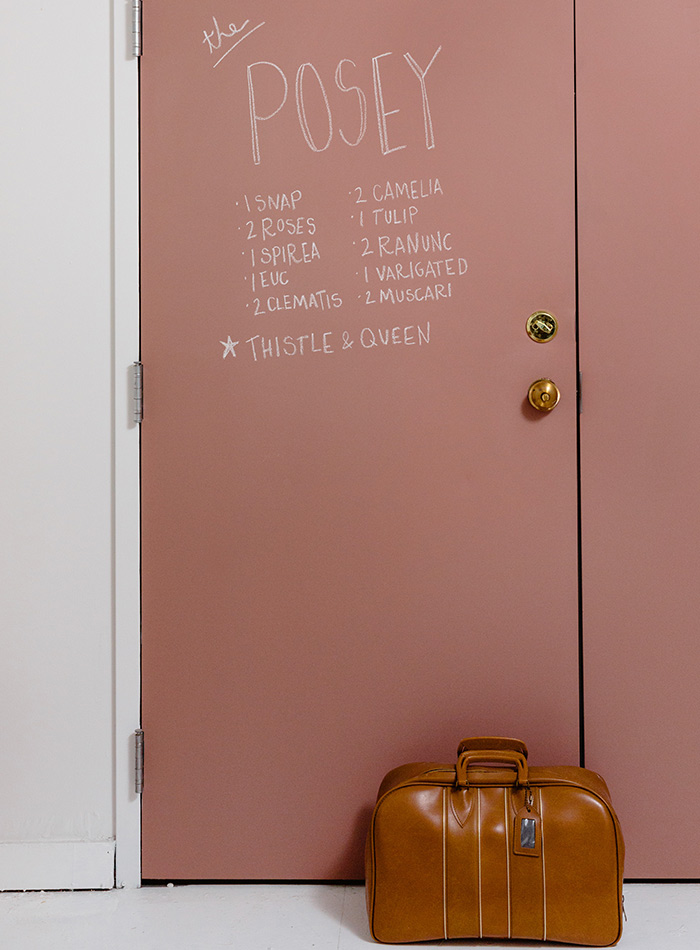 the
POSEY
· 1 SNAP
· 2 ROSES
· 1 SPIREA
· 1 EUC
· 2 CLEMATIS
· 2 CAMELIA
· 1 TULIP
· 2 RANUNC
· 1 VARIGATED
· 2 MUSCARI
★ THISTLE & QUEEN